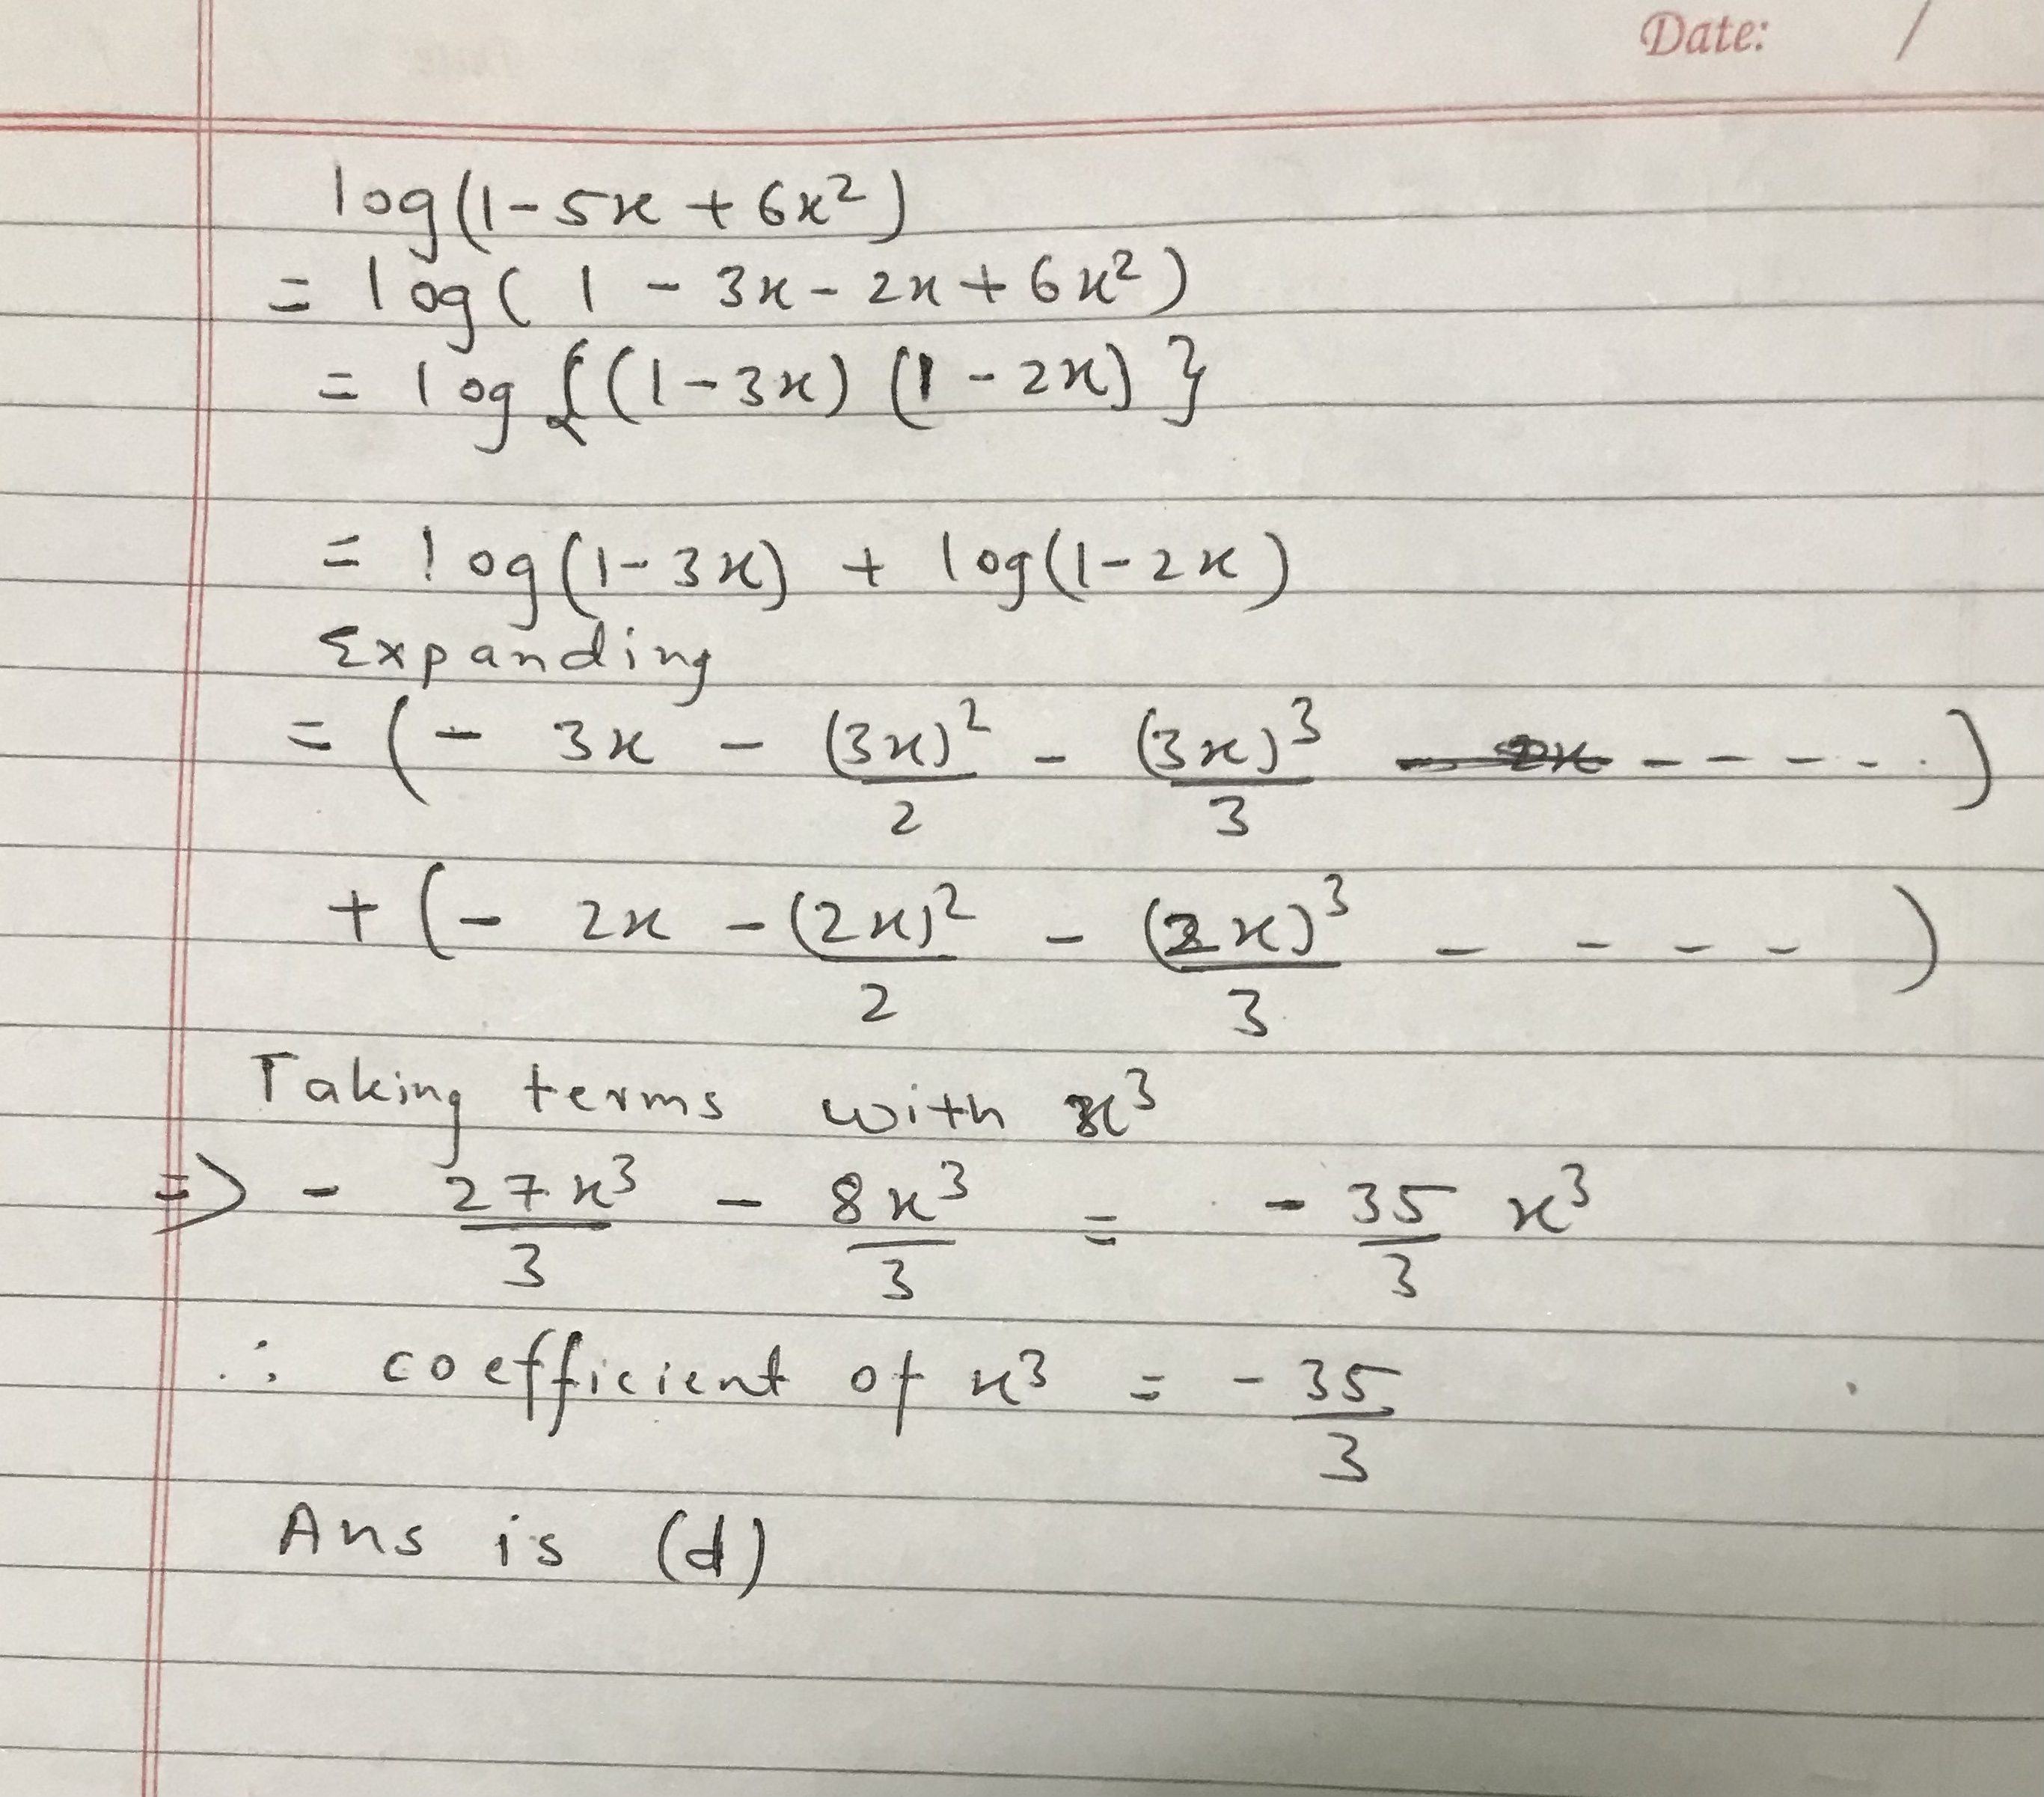 Date: /
log(1-5x+6x²)
= log( 1 - 3x - 2x + 6x²)
= log {(1-3x) (1-2x)}
= log(1-3x) + log(1-2x)
Expanding
= (- 3x - (3x)²/2 - (3x)³/3 - - - - - .)
+ (- 2x - (2x)²/2 - (2x)³/3 - - - - )
Taking terms with x³
=> - 27x³/3 - 8x³/3 = - 35/3 x³
∴ coefficient of x³ = - 35/3
Ans is (d)